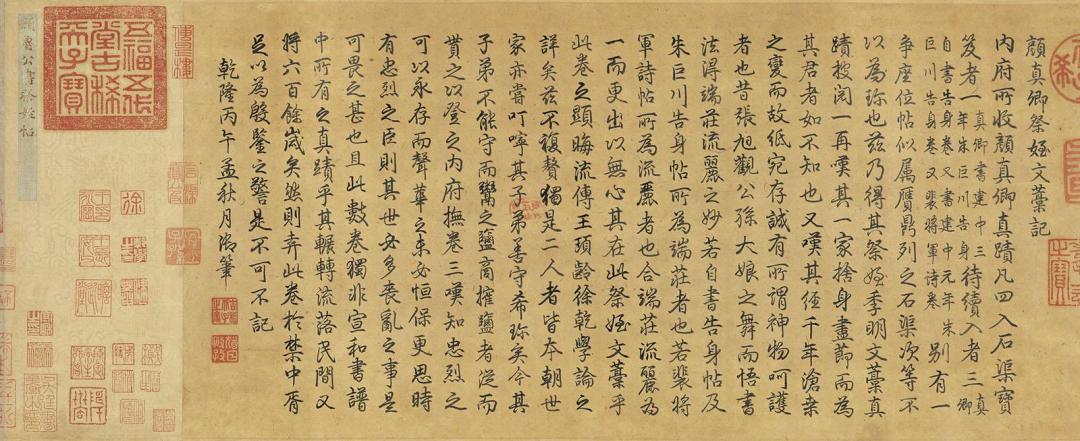 顔真卿祭姪文藁記
内府所收顔真卿真蹟凡四入石渠寶
笈者一真卿書建中三年朱巨川告身待續入者三真卿
自書告身卷又書建中元年朱巨川告身卷又裴將軍詩卷別有一
争座位帖似属贋鼎列之石渠次等不
以為珍也兹乃得其祭姪季明文藁真
蹟披閱一再嘆其一家捨身盡節而為
其君者如不知也又嘆其經千年滄桒
之變而故紙宛存誠有所謂神物呵護
者也昔張旭觀公孫大娘之舞而悟書
法淂端莊流麗之妙若自書告身帖及
朱巨川告身帖所為端莊者也若裴將
軍詩帖所為流麗者也合端莊流麗為
一而更出以無心其在此祭姪文藁乎
此卷之顯晦流傳王頊齡徐乾學論之
詳矣兹不複贅獨是二人者皆本朝世
家亦嘗叮嚀其子弟善守希珍矣今其
子弟不能守而鬻之鹽商搉鹽者從而
貰之以登之内府撫卷三嘆知忠烈之
可以永存而聲華之未必恒保更思時
有忠烈之臣則其世必多喪亂之事是
可畏之甚也且此數卷獨非宣和書譜
中所有之真蹟乎其輾轉流落民間又
將六百餘歲矣然則弆此卷於禁中胥
足以為殷鑒之警是不可不記
乾隆丙午孟秋月御筆
傳是樓
五福五代堂古稀天子寶
顔魯公書祭姪帖